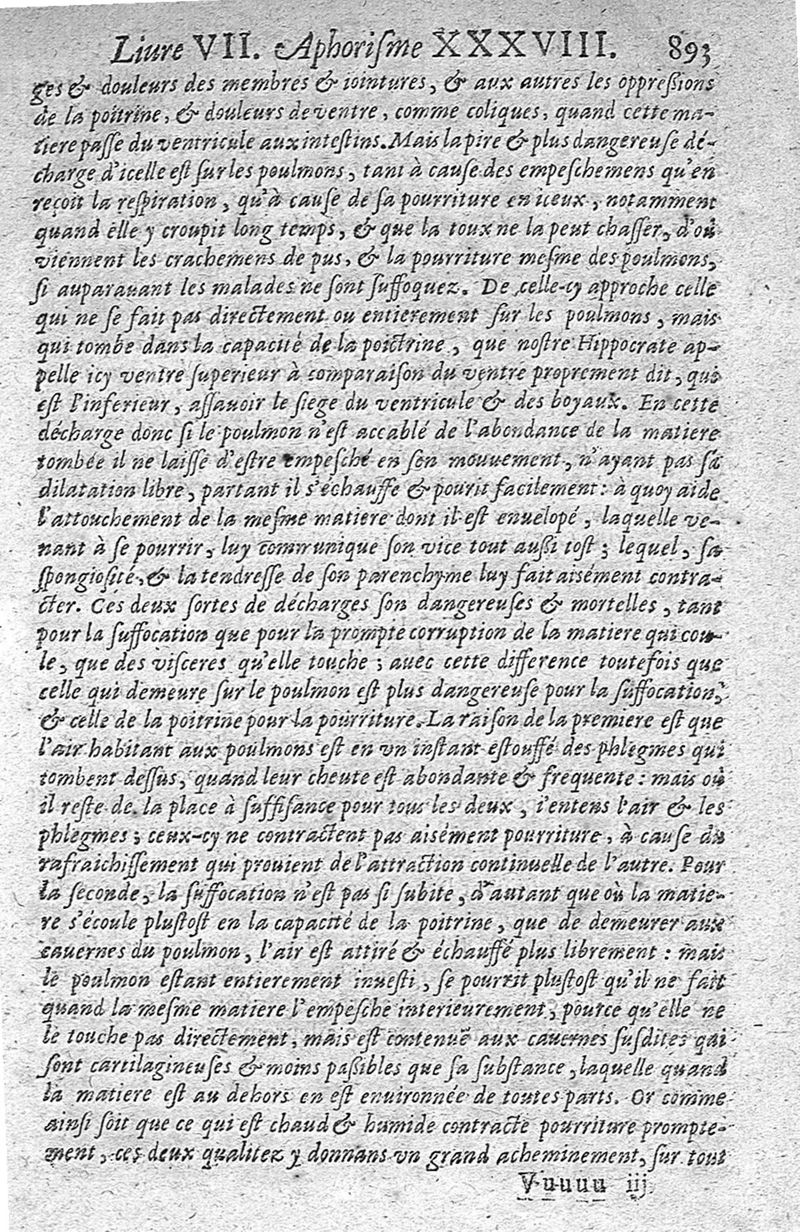 Liure VII. Aphorisme XXXVIII. 893
ges & douleurs des membres & iointures, & aux autres les oppreßions
de la poitrine, & douleurs de ventre, comme coliques, quand cette ma-
tiere passe du ventricule aux intestins. Mais la pire & plus dangereuse dé-
charge d'icelle est sur les poulmons, tant à cause des empeschemens qu'en
reçoit la respiration, qu'à cause de sa pourriture en iceux, notamment
quand elle y croupit long temps, & que la toux ne la peut chasser, d'où
viennent les crachemens de pus, & la pourriture mesme des poulmons,
si auparauant les malades ne sont suffoquez. De celle-cy approche celle
qui ne se fait pas directement ou entierement sur les poulmons, mais
qui tombe dans la capacité de la poictrine, que nostre Hippocrate ap-
pelle icy ventre superieur à comparaison du ventre proprement dit, qui
est l'inferieur, assauoir le siege du ventricule & des boyaux. En cette
décharge donc si le poulmon n'est accablé de l'abondance de la matiere
tombée il ne laisse d'estre empesché en son mouuement, n'ayant pas sa
dilatation libre, partant il s'échauffe & pourit facilement: à quoy aide
l'attouchement de la mesme matiere dont il est enuelopé, laquelle ve-
nant à se pourrir, luy communique son vice tout außi tost; lequel, sa
spongiosité, & la tendresse de son parenchyme luy fait aisément contra-
cter. Ces deux sortes de décharges son dangereuses & mortelles, tant
pour la suffocation que pour la prompte corruption de la matiere qui cou-
le, que des visceres qu'elle touche; auec cette difference toutefois que
celle qui demeure sur le poulmon est plus dangereuse pour la suffocation,
& celle de la poitrine pour la pourriture. La raison de la premiere est que
l'air habitant aux poulmons est en vn instant estouffé des phlegmes qui
tombent dessus, quand leur cheute est abondante & frequente: mais où
il reste de la place à suffisance pour tous les deux, i'entens l'air & les
phlegmes; ceux-cy ne contractent pas aisément pourriture, à cause du
rafraichissement qui prouient de l'attraction continuelle de l'autre. Pour
la seconde, la suffocation n'est pas si subite, d'autant que où la matie-
re s'écoule plustost en la capacité de la poitrine, que de demeurer aux
cauernes du poulmon, l'air est attiré & échauffé plus librement: mais
le poulmon estant entierement inuesti, se pourrit plustost qu'il ne fait
quand la mesme matiere l'empesche interieurement, pource qu'elle ne
le touche pas directement, mais est contenuë aux cauernes susdites qui
sont cartilagineuses & moins paßibles que sa substance, laquelle quand
la matiere est au dehors en est enuironnée de toutes parts. Or comme
ainsi soit que ce qui est chaud & humide contracte pourriture prompte-
ment, ces deux qualitez y donnans vn grand acheminement, sur tout
Vuuuu iij